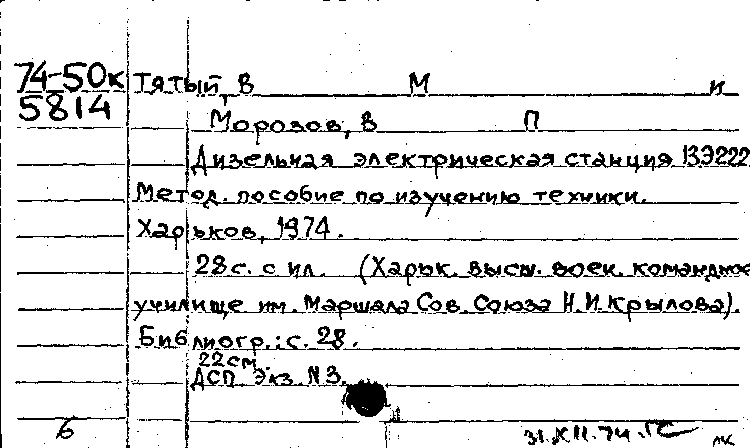 74-50к Тятый, В М и
5814
Морозов, В П
Дизельная электрическая станция 13Э222
Метод. пособие по изучению техники.
Харьков, 1974.
28с. с ил. (Харьк. высш. воен. командное
училище им. Маршала Сов. Союза Н.И.Крылова).
Библиогр.: с. 28.
22см.
ДСП. Экз. N3.
6 31.XII.74
лк